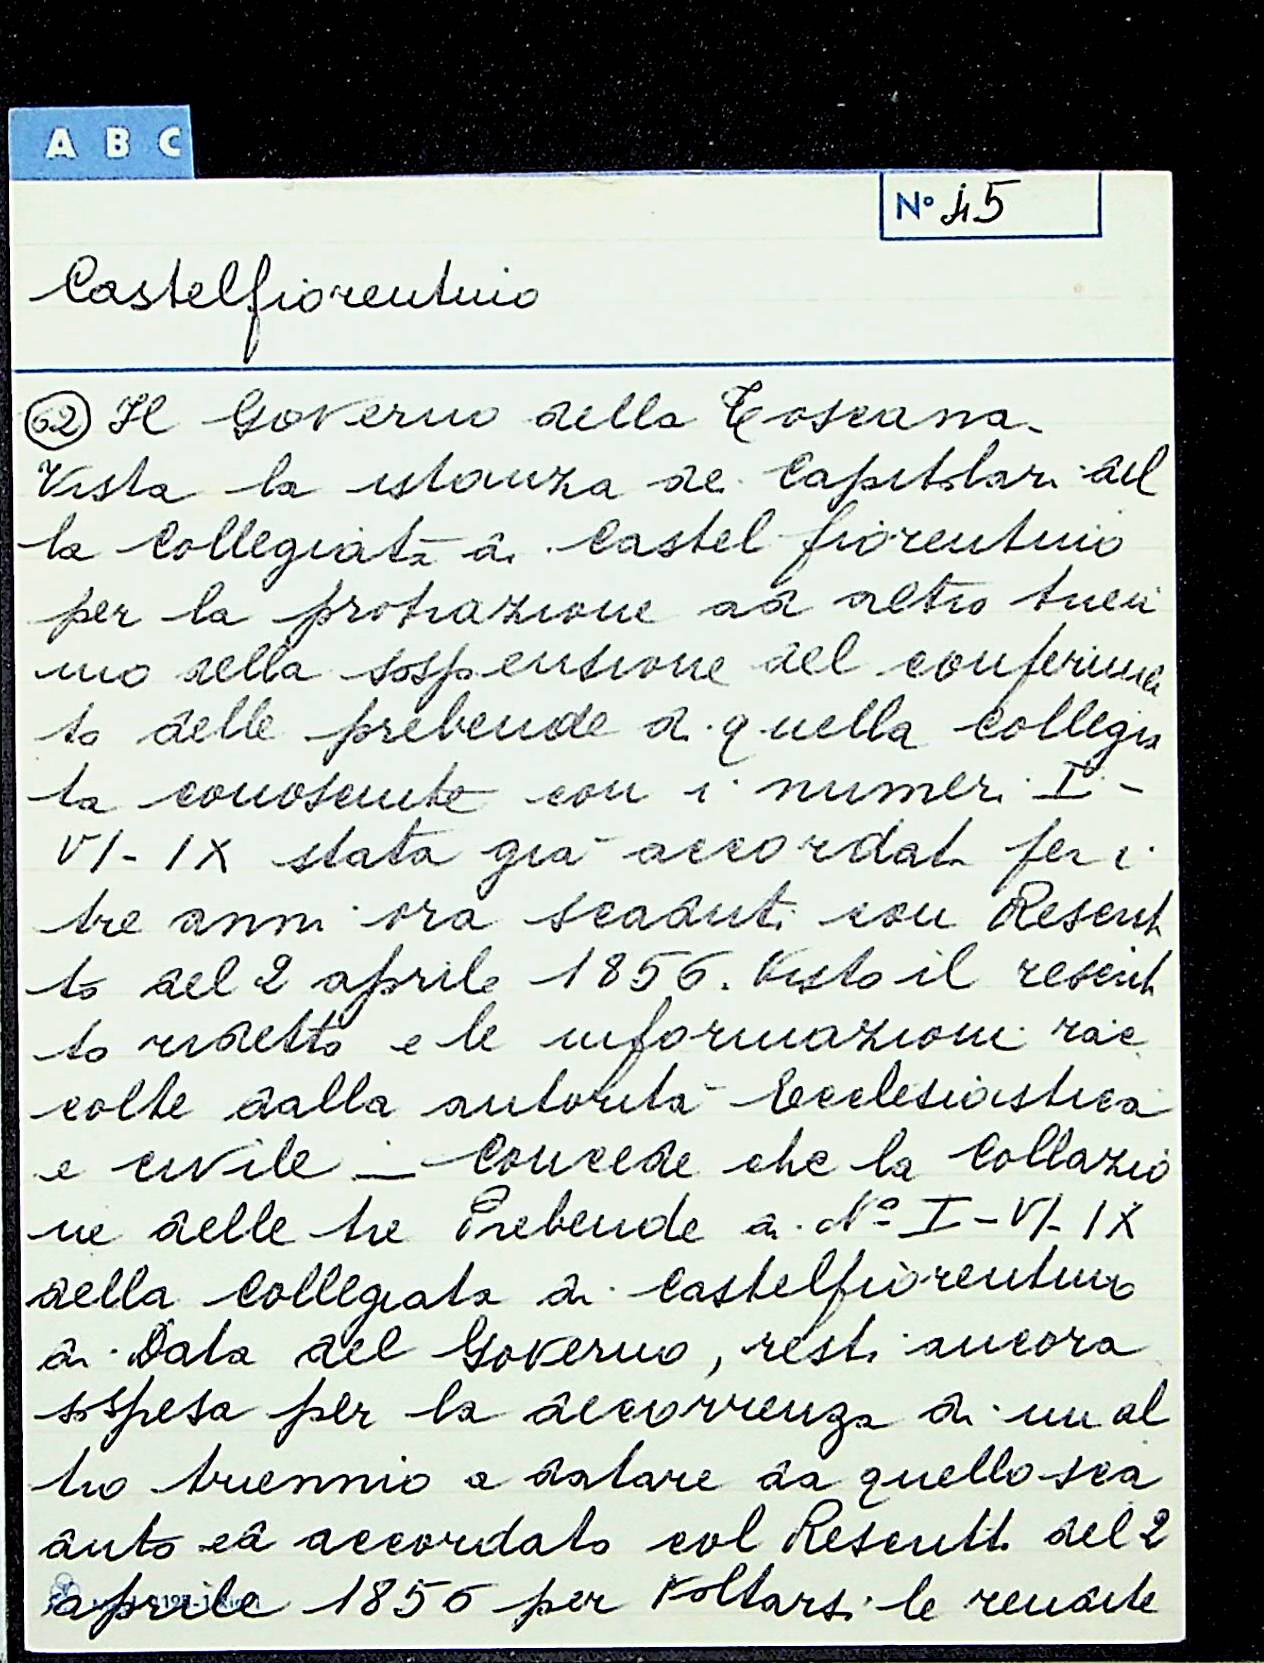 A B C
N° 45
Castelfiorentino
62 Il Governo della Toscana.
Vista la istanza dei Capitolari del
la Collegiata di Castel fiorentino
per la protrazione ad altro trien
nio della sospensione del conferimen
to delle prebende di quella collegia
ta conosciute con i numeri I -
VI - IX stata già accordata per i
tre anni ora scaduti con Rescrit
to del 2 aprile 1856. Visto il rescrit
to sudetto e le informazioni rac
colte dalla autorità Ecclesiastica
e civile — Concede che la Collazio
ne delle tre Prebende di N° I - VI - IX
della Collegiata di Castelfiorentino
di Data del Governo, resti ancora
sospesa per la decorrenza di un al
tro triennio a datare da quello sca
duto ed accordato col Rescritto del 2
aprile 1856 per voltarsi le rendite